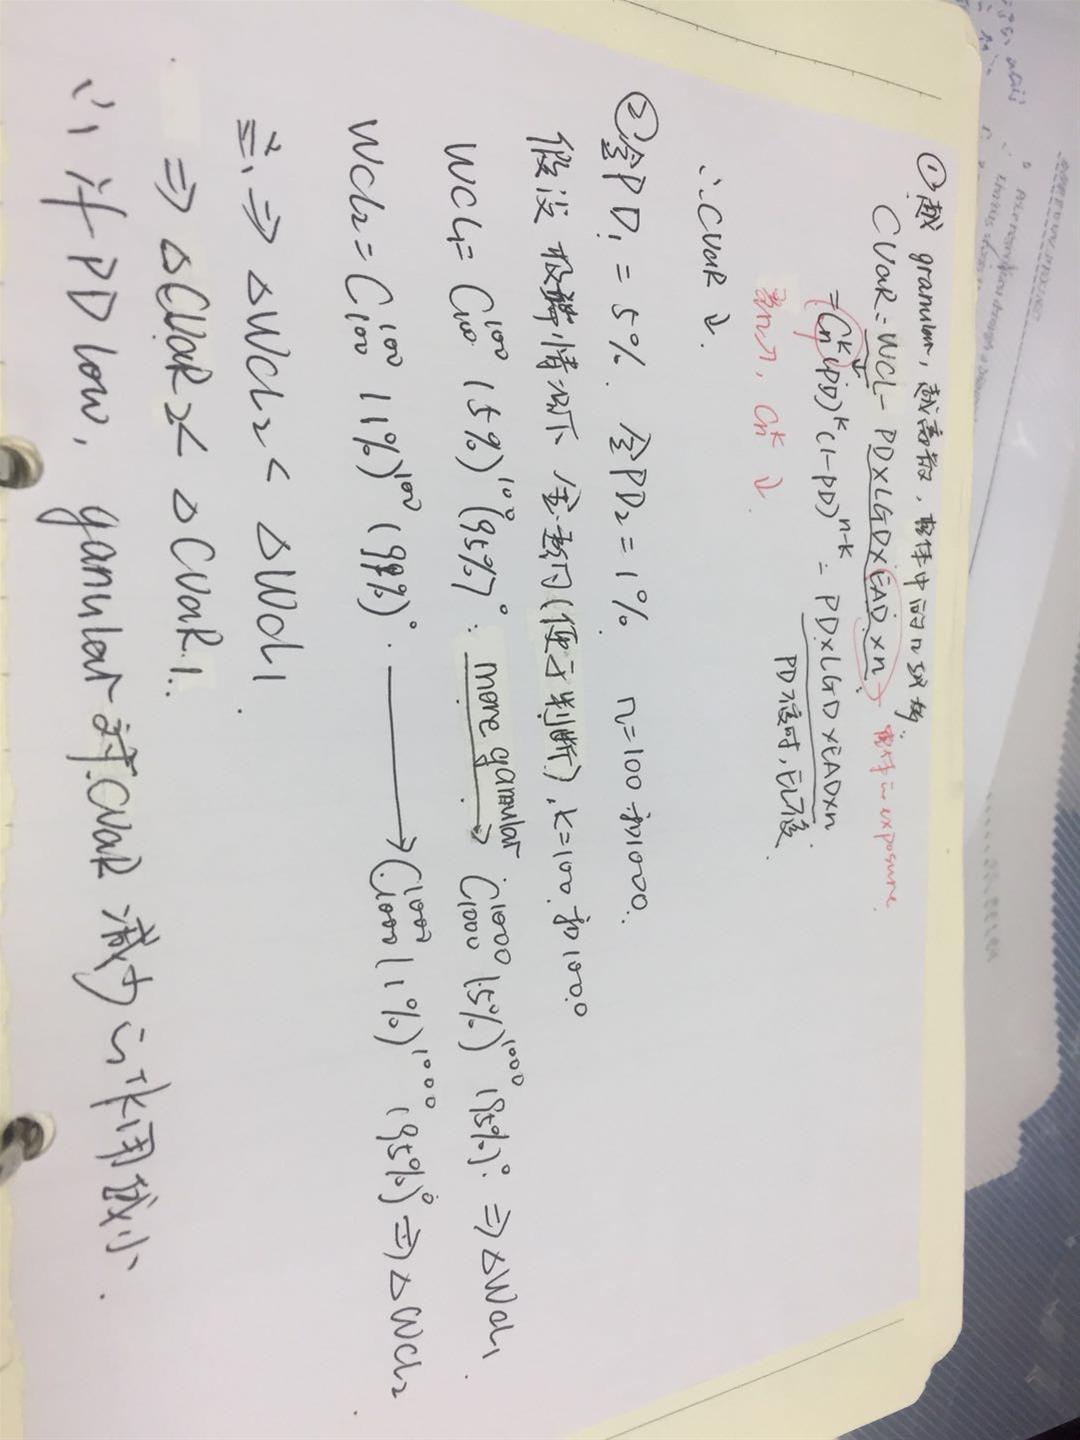 ①越 granular,越离散,整体中的n越多.
CVaR=WCL- PD×LGD×EAD×n → 整体的exposure.
=Cn^k (PD)^k (1-PD)^n-k - PD×LGD×EAD×n
若n↗,Cn^k ↓ PD不变时,它不变.
∴CVaR ↓.
②令PD₁=5%. 令PD₂=1% n=100和1000.
假设极端情况下 全违约(便于判断),k=100.和1000
WCL₁= C100^100 (5%)^100 (95%)^0. more granular → C1000^1000 (5%)^1000 (95%)^0. ⇒ΔWCL₁
WCL₂= C100^100 (1%)^100 (99%)^0. → C1000^1000 (1%)^1000 (95%)^0 ⇒ΔWCL₂
⇒ ΔWCL₂ < ΔWCL1
⇒ ΔCVaR2< ΔCVaR1..
∴,当PD low, granular对CVaR减少的作用减小.